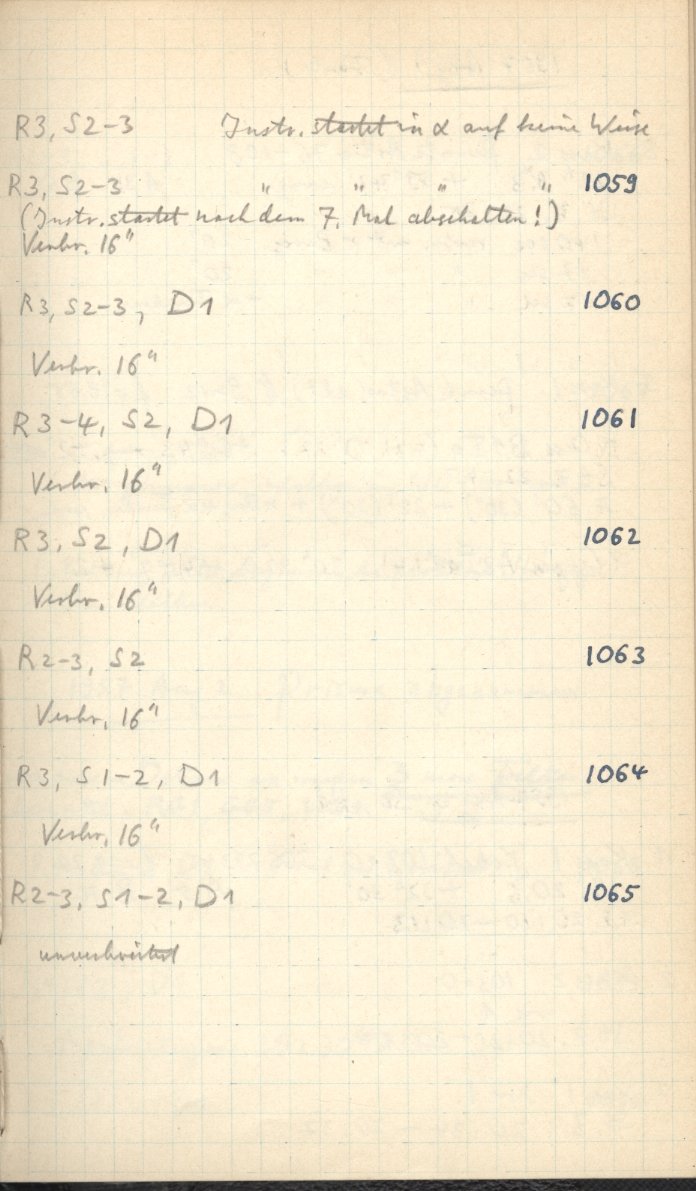 R3, S2-3 Instr. startet in α auf keine Weise
R3, S2-3 " " " " 1059
(Instr. startet nach dem 7. Mal abschalten!)
Verbr. 16"
R3, S2-3, D1 1060
Verbr. 16"
R3-4, S2, D1 1061
Verbr. 16"
R3, S2, D1 1062
Verbr. 16"
R2-3, S2 1063
Verbr. 16"
R3, S1-2, D1 1064
Verbr. 16"
R2-3, S1-2, D1 1065
unverbreitert